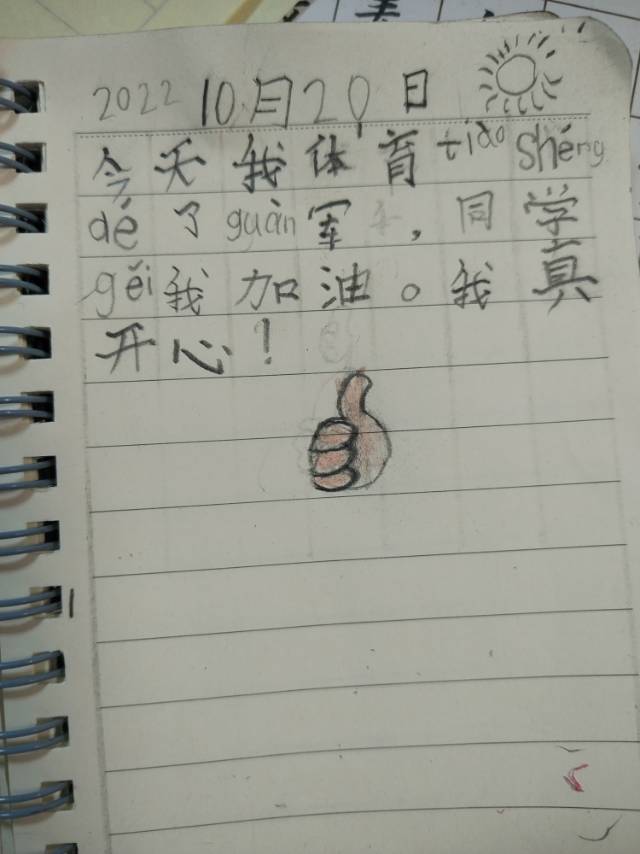 2022 10月20日
今天我体育tiào shéng
dé了guàn军，同学
gěi我加油。我真
开心！